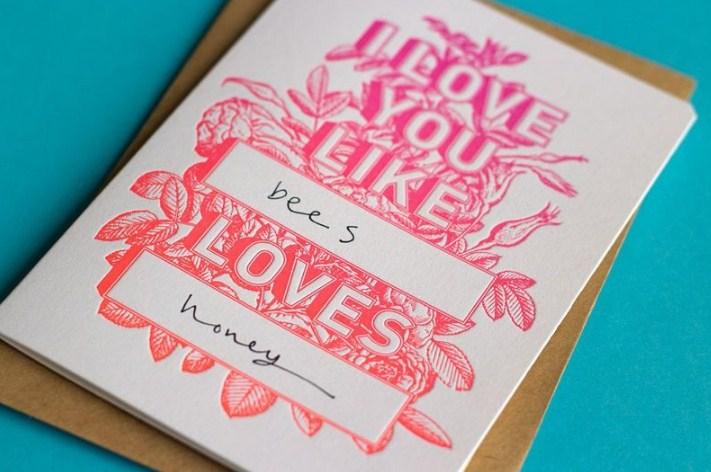 I LOVE
YOU
LIKE
bees
LOVES
honey